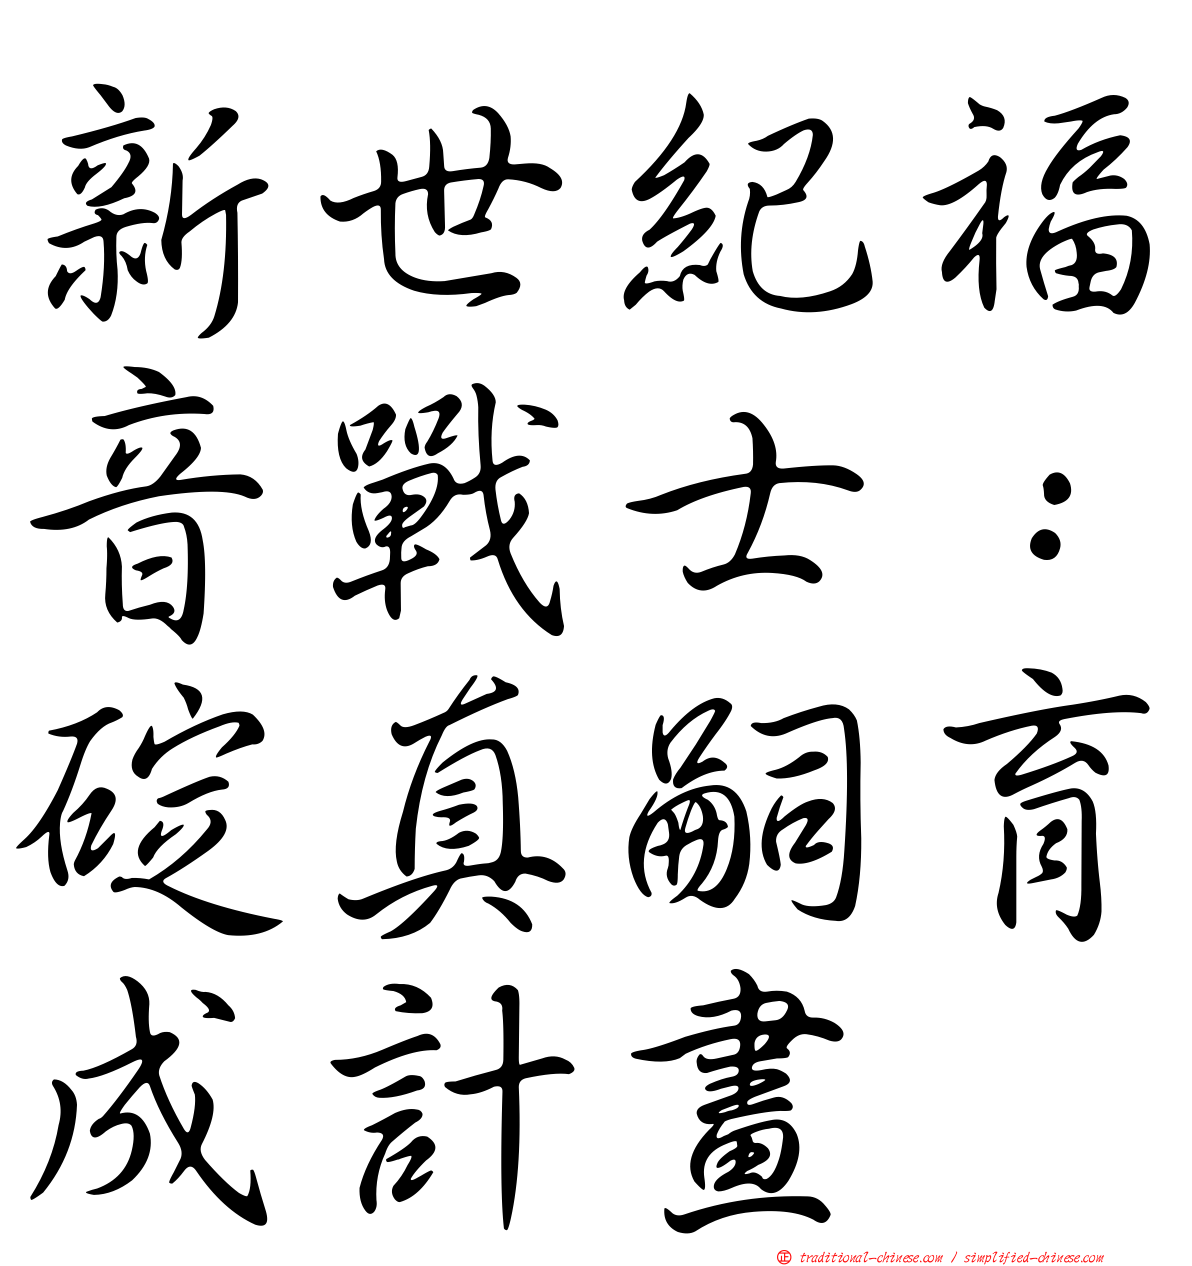 新世紀福
音戰士：
碇真嗣育
成計畫
㊣ traditional-chinese.com / simplified-chinese.com